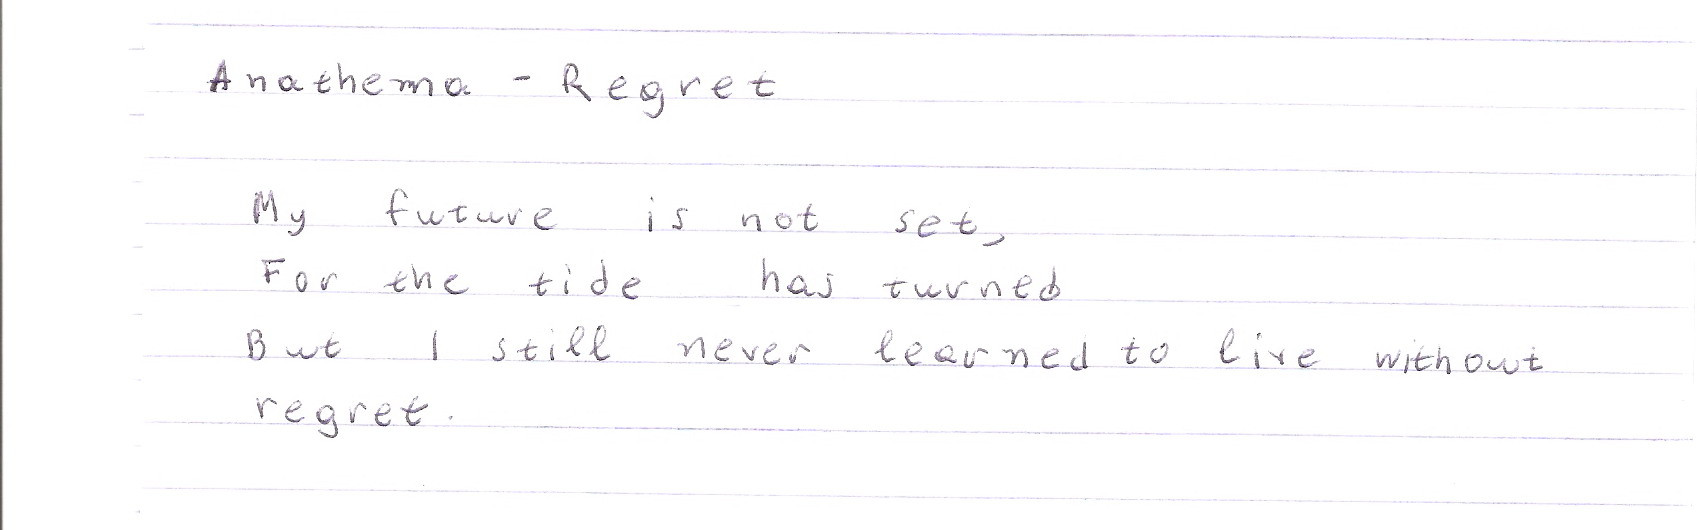 Anathema - Regret
My future is not set,
For the tide has turned
But I still never learned to live without
regret.